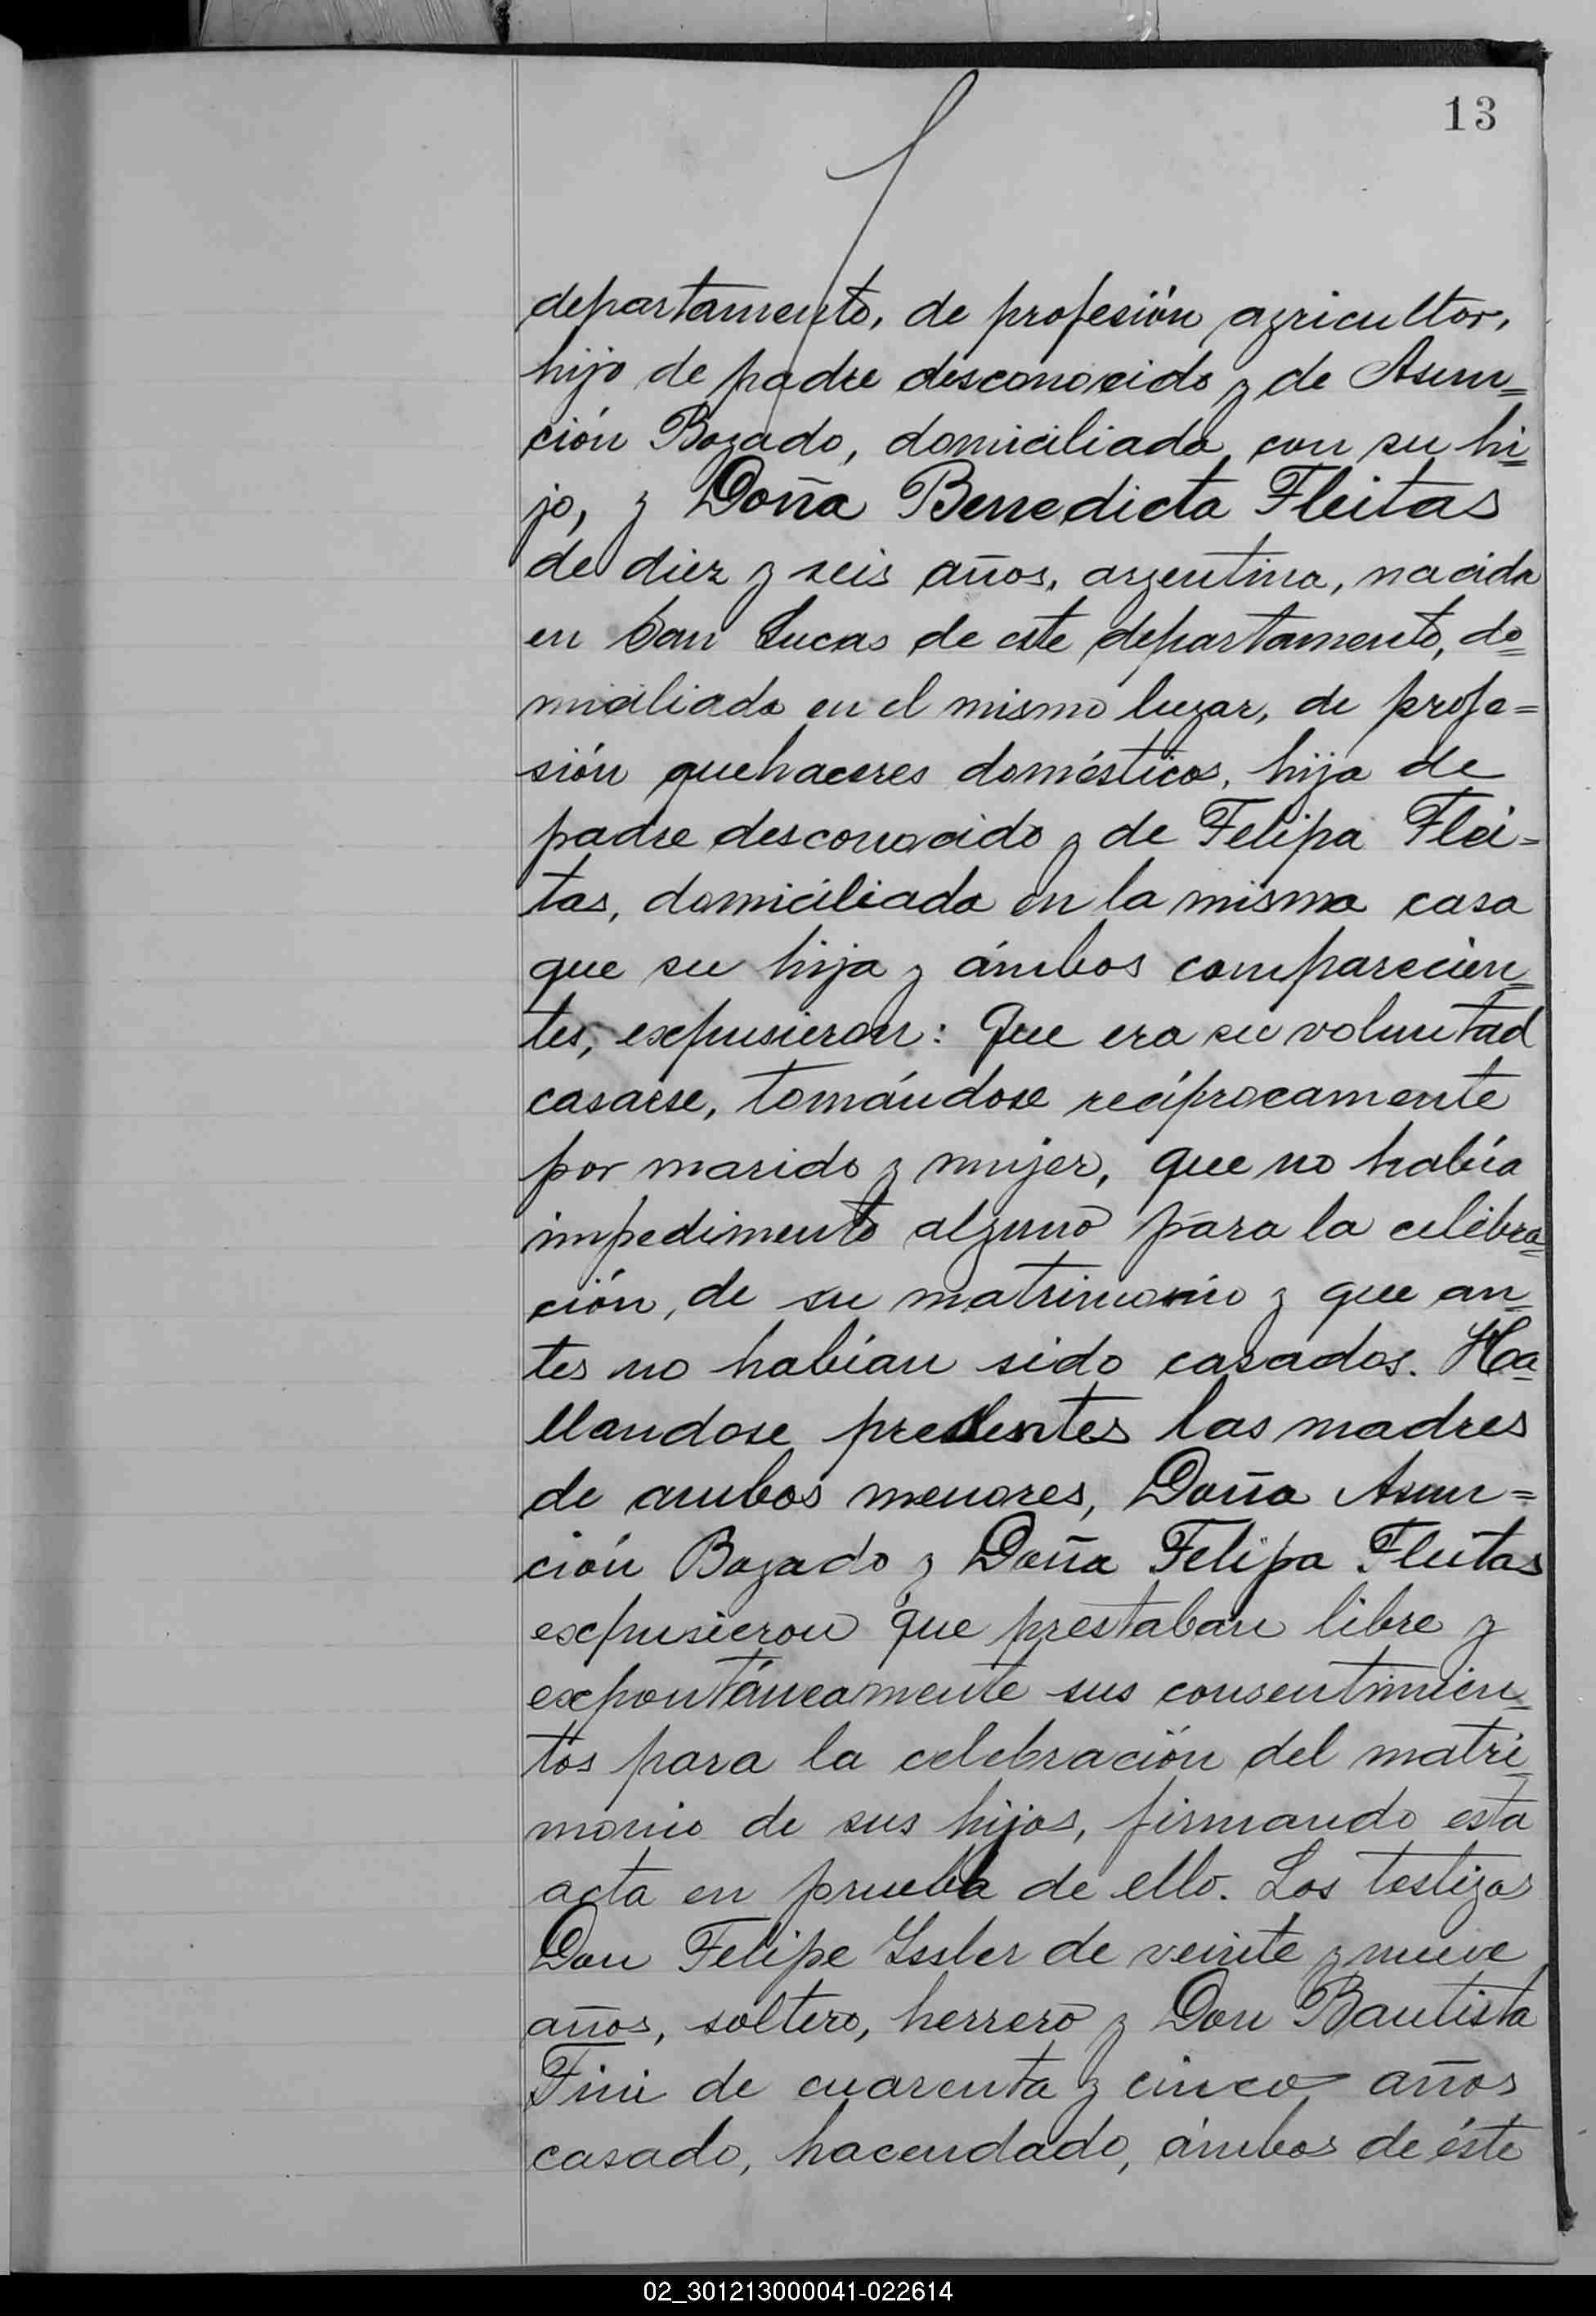 13
departamento, de profesión agricultor,
hijo de padre desconocido y de Asun=
ción Bogado, domiciliada con su hi=
jo, y Doña Benedicta Fleitas
de diez y seis años, argentina, nacida
en San Lucas de este departamento, do=
miciliada en el mismo lugar, de profe=
sión quehaceres domésticos, hija de
padre desconocido y de Felipa Flei=
tas, domiciliada en la misma casa
que su hija y ámbos comparecien=
tes, expusieron: Que era su voluntad
casarse, tomándose recíprocamente
por marido y mujer, que no había
impedimento alguno para la celebra=
ción, de su matrimonio y que an=
tes no habían sido casados. Ha=
llandose presentes las madres
de ambos menores, Doña Asun=
ción Bogado y Doña Felipa Fleitas
expusieron que prestaban libre y
expontáneamente sus consentimien=
tos para la celebración del matri=
monio de sus hijos, firmando esta
acta en prueba de ello. Los testigos
Don Felipe Issler de veinte y nueve
años, soltero, herrero y Don Bautista
Fini de cuarenta y cinco años
casado, hacendado, ámbos de éste
02_301213000041-022614